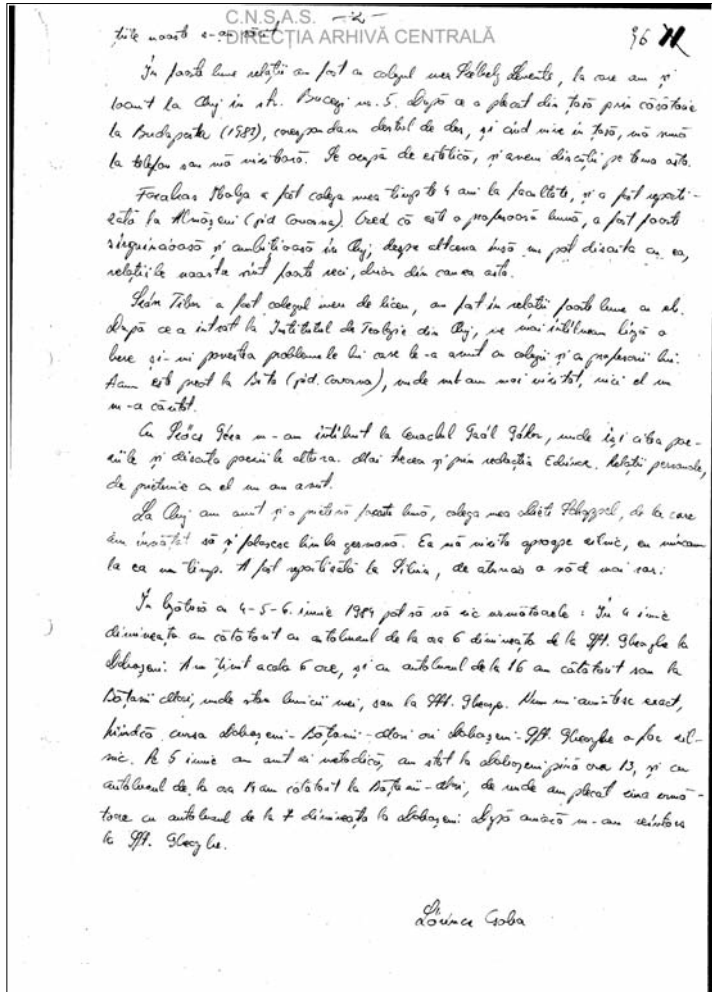 C.N.S.A.S. -2-
DIRECȚIA ARHIVĂ CENTRALĂ 96
țiile noastre s-au răcit.
În foarte bune relații am fost cu colegul meu Székely Levente, la care am și
locuit la Cluj în str. Bucegi nr. 5. După ce a plecat din țară prin căsătorie
la Budapesta (1983), corespondam destul de des, și cînd vine în țară, mă sună
la telefon sau mă vizitează. Se ocupă de estetică, și avem discuții pe tema asta.
Farkas Ibolya a fost colega mea timp de 4 ani la facultate, și a fost reparti-
zată la Almășeni (jud. Covasna). Cred că este o profesoară bună, a fost foarte
siguincioasă și ambițioasă în Cluj, despre altceva însă nu pot discuta cu ea,
relațiile noastre sînt foarte reci, doar din cauza asta.
Tibor a fost colegul meu de liceu, am fost în relații foarte bune cu el.
După ce a intrat la Institutul de Teologie din Cluj, ne mai întîlneam lîngă o
bere și-mi povestea problemele lui care le-a avut cu colegii și cu profesorii lui.
Acum este preot la Bita (jud. Covasna), unde nu l-am mai vizitat, nici el nu
m-a căutat.
Cu Szőcs Géza m-am întîlnit la Cenaclul Gaál Gábor, unde își citea poe-
ziile și discuta poeziile altora. Mai trecea și prin redacția Echinox. Relații personale,
de prietenie cu el nu am avut.
La Cluj am avut și o prietenă foarte bună, colega mea, de la care
am învățat să și folosesc limba germană. Ea mă vizita aproape zilnic, eu mîncam
la ea un timp. A fost repartizată la Sibiu, de atunci o văd mai rar.
În legătură cu 4-5-6. iunie 1984 pot să vă zic următoarele: În 4 iunie
dimineața am călătorit cu autobuzul de la ora 6 dimineața de la Sft. Gheorghe la
Dobușeni. Am ținut acolo 6 ore, și cu autobuzul de la 16 am călătorit sau la
Bățanii Mari, unde stau bunicii mei, sau la Sft. Gheorghe. Nu-mi amintesc exact,
fiindcă cursa - Bățanii-Mari ori - Sft. Gheorghe o fac zil-
nic. Pe 5 iunie am avut zi metodică, am stat la pînă ora 13, și cu
autobuzul de la ora 14 am călătorit la Bățanii-Mari, de unde am plecat ziua urmă-
toare cu autobuzul de la 7 dimineața la. După amiază m-am reîntors
la Sft. Gheorghe.
Lőrincz Csaba